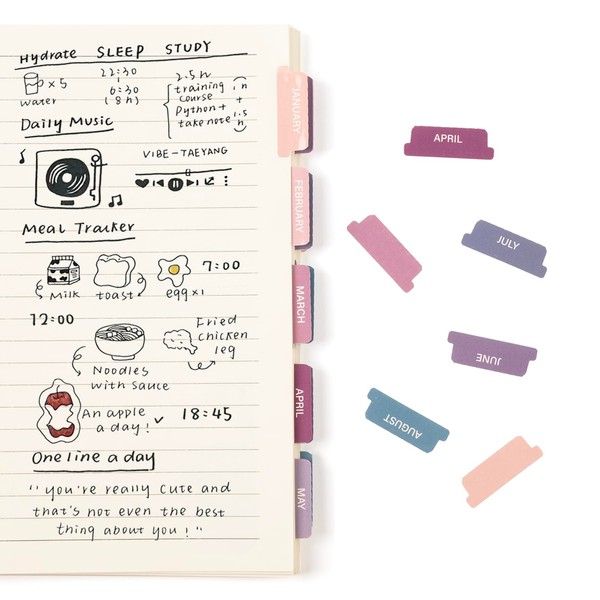 Hydrate SLEEP STUDY
×5
water
22:30
6:30
(8h)
2.5h
training 1h
course +
Python + 1.5h
take note
Daily Music
VIBE-TAEYANG
Meal Tracker
Milk toast egg×1 7:00
12:00
Noodles
with sauce
Fried
chicken
leg
An apple
a day! 18:45
One line a day
"you're really cute and
that's not even the best
thing about you!"
JANUARY
FEBRUARY
MARCH
APRIL
MAY
APRIL
JULY
JUNE
AUGUST